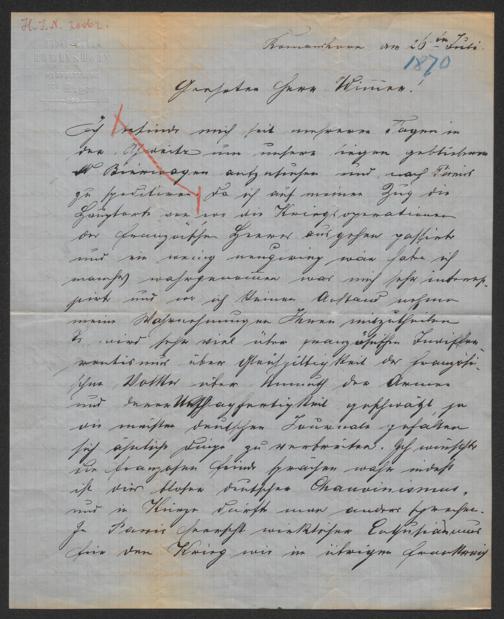 am 26ten Juli
1870
Geehrter Herr Wimmer!
Ich befinde mich seit mehreren Tagen in
der Schweiz um unsere liegen gebliebenen
Bierwagen aufzusuchen und nach Paris
zu spedieren. Da ich auf meinen Zug die
Hauptorte wo die Kriegsoperationen
der französischen Heeres ausgehen passierte
und ein wenig neugierig war habe ich
manches wahrgenommen was mich sehr interes-
sirt und wo ich keinen Anstand nehme
meine Wahrnehmungen Ihnen mitzutheilen
Es wird sehr viel über französischen Indiffer-
rentismus über Gleichgiltigkeit des französi-
schen Volkes über Unmuth der Armee
und deren Unschlagfertigkeit geschwätzt, ja
die meisten deutschen Journale gefallen
sich ähnliche Dinge zu verbreiten. Ich wünschte
die Franzosenfeinde sprächen wahr indeß
ist dies bloser deutscher Chauvinismus,
und in Kürze dürfte man anders sprechen.
In Paris herrscht wirklicher Enthusiasmus
für den Krieg wie im übrigen Frankreich